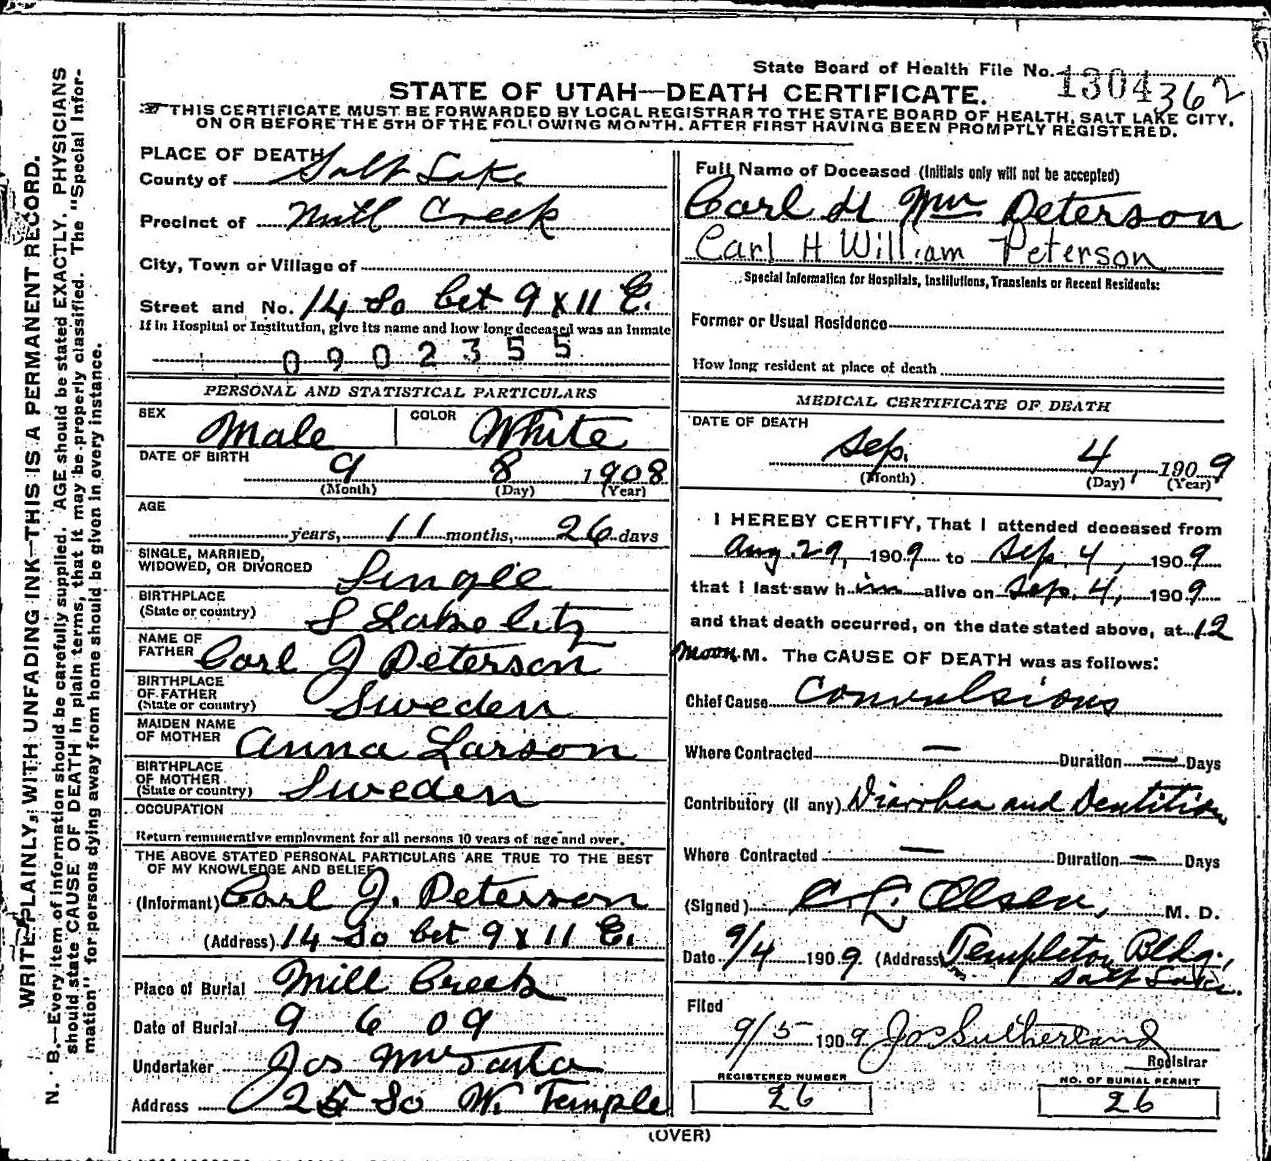 State Board of Health File No. 1304362
STATE OF UTAH—DEATH CERTIFICATE.
THIS CERTIFICATE MUST BE FORWARDED BY LOCAL REGISTRAR TO THE STATE BOARD OF HEALTH, SALT LAKE CITY,
ON OR BEFORE THE 5TH OF THE FOLLOWING MONTH, AFTER FIRST HAVING BEEN PROMPTLY REGISTERED.
WRITE PLAINLY, WITH UNFADING INK—THIS IS A PERMANENT RECORD.
N. B.—Every item of information should be carefully supplied. AGE should be stated EXACTLY. PHYSICIANS
should state CAUSE OF DEATH in plain terms, that it may be properly classified. The "Special Infor-
mation" for persons dying away from home should be given in every instance.
PLACE OF DEATH
County of Salt Lake
Precinct of Mill Creek
City, Town or Village of
Street and No. 14 So bet 9 & 11 E.
If in Hospital or Institution, give its name and how long deceased was an Inmate
0902355
PERSONAL AND STATISTICAL PARTICULARS
SEX Male COLOR White
DATE OF BIRTH 9 8 1908
(Month) (Day) (Year)
AGE
years, 11 months, 26 days
SINGLE, MARRIED,
WIDOWED, OR DIVORCED Single
BIRTHPLACE
(State or country) S Lake City
NAME OF
FATHER Carl J Peterson
BIRTHPLACE
OF FATHER
(State or country) Sweden
MAIDEN NAME
OF MOTHER Anna Larson
BIRTHPLACE
OF MOTHER
(State or country) Sweden
OCCUPATION
Return remunerative employment for all persons 10 years of age and over.
THE ABOVE STATED PERSONAL PARTICULARS ARE TRUE TO THE BEST
OF MY KNOWLEDGE AND BELIEF
(Informant) Carl J. Peterson
(Address) 14 So bet 9 & 11 E.
Place of Burial Mill Creek
Date of Burial 9 6 09
Undertaker Jos Wm Taylor
Address 25 So W. Temple
Full Name of Deceased (Initials only will not be accepted)
Carl H Wm Peterson
Carl H William Peterson
Special Information for Hospitals, Institutions, Transients or Recent Residents:
Former or Usual Residence
How long resident at place of death
MEDICAL CERTIFICATE OF DEATH
DATE OF DEATH
Sep. 4, 1909
(Month) (Day) (Year)
I HEREBY CERTIFY, That I attended deceased from
Aug. 29, 1909 to Sep. 4, 1909
that I last saw him alive on Sep. 4, 1909
and that death occurred, on the date stated above, at 12
noon M. The CAUSE OF DEATH was as follows:
Chief Cause Convulsions
Where Contracted — Duration — Days
Contributory (If any) Diarrhea and Dentition
Where Contracted — Duration — Days
(Signed) C. L. Olsen, M. D.
Date 9/4 1909 (Address Templeton Bldg.,
Salt Lake.
Filed
9/5 1909 Jos Sutherland
Registrar
REGISTERED NUMBER
26
NO. OF BURIAL PERMIT
26
(OVER)